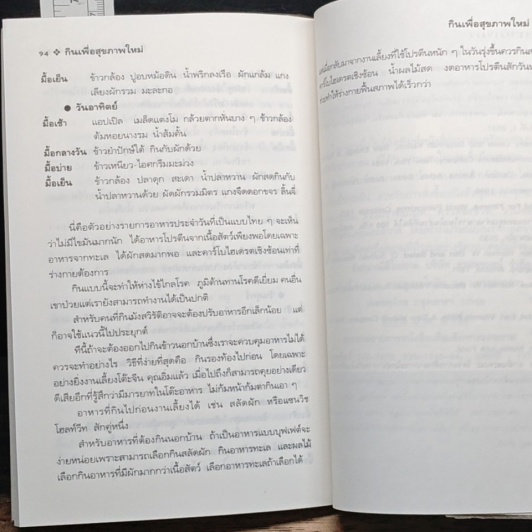 94 ❖ กินเพื่อสุขภาพใหม่
มื้อเย็น ข้าวกล้อง ปูอบหม้อดิน น้ำพริกลงเรือ ผักแกล้ม แกง
เลียงผักรวม มะละกอ
● วันอาทิตย์
มื้อเช้า แอปเปิล เมล็ดแตงโม กล้วยตากหั่นบาง ๆ ข้าวกล้อง
ต้มหอยนางรม น้ำส้มคั้น
มื้อกลางวัน ข้าวยำปักษ์ใต้ กินกับผักด้วย
มื้อบ่าย ข้าวเหนียว-ไอศกรีมมะม่วง
มื้อเย็น ข้าวกล้อง ปลาดุก สะเดา น้ำปลาหวาน ผักสดกินกับ
น้ำปลาหวานด้วย ผัดผักรวมมิตร แกงจืดดอกขจร ลิ้นจี่
นี่คือตัวอย่างรายการอาหารประจำวันที่เป็นแบบไทย ๆ จะเห็น
ว่าไม่มีไขมันมากนัก ได้อาหารโปรตีนจากเนื้อสัตว์เพียงพอโดยเฉพาะ
อาหารจากทะเล ได้ผักสดมากพอ และคาร์โบไฮเดรตเชิงซ้อนเท่าที่
ร่างกายต้องการ
กินแบบนี้จะทำให้ห่างไข้ไกลโรค ภูมิต้านทานโรคดีเยี่ยม คนอื่น
เขาป่วยแต่เรายังสามารถทำงานได้เป็นปกติ
สำหรับคนที่กินมังสวิรัติอาจจะต้องปรับอาหารอีกเล็กน้อย แต่
ก็อาจใช้แนวนี้ไปประยุกต์
ทีนี้ถ้าจะต้องออกไปกินข้าวนอกบ้านซึ่งเราจะควบคุมอาหารไม่ได้
ควรจะทำอย่างไร วิธีที่ง่ายที่สุดคือ กินรองท้องไปก่อน โดยเฉพาะ
อย่างยิ่งงานเลี้ยงโต๊ะจีน คุณอิ่มแล้ว เมื่อไปถึงก็สามารถคุยอย่างเดียว
ดีเสียอีกที่รู้สึกว่ามีมารยาทในโต๊ะอาหาร ไม่ก้มหน้าก้มตากินเอา ๆ
อาหารที่กินไปก่อนงานเลี้ยงได้ เช่น สลัดผัก หรือแซนวิช
โฮลท์วีท สักคู่หนึ่ง
สำหรับอาหารที่ต้องกินนอกบ้าน ถ้าเป็นอาหารแบบบุฟเฟ่ต์จะ
ง่ายหน่อยเพราะสามารถเลือกกินสลัดผัก กินอาหารทะเล และผลไม้
เลือกกินอาหารที่มีผักมากกว่าเนื้อสัตว์ เลือกอาหารทะเลถ้าเลือกได้
กินเพื่อสุขภาพใหม่
เมื่อกลับมาจากงานเลี้ยงที่ใช้โปรตีนหนัก ๆ ในวันรุ่งขึ้นควรกิน
คาร์โบไฮเดรตเชิงซ้อน น้ำผลไม้สด งดอาหารโปรตีนสักวัน
ทำให้ร่างกายฟื้นสภาพได้เร็วกว่า